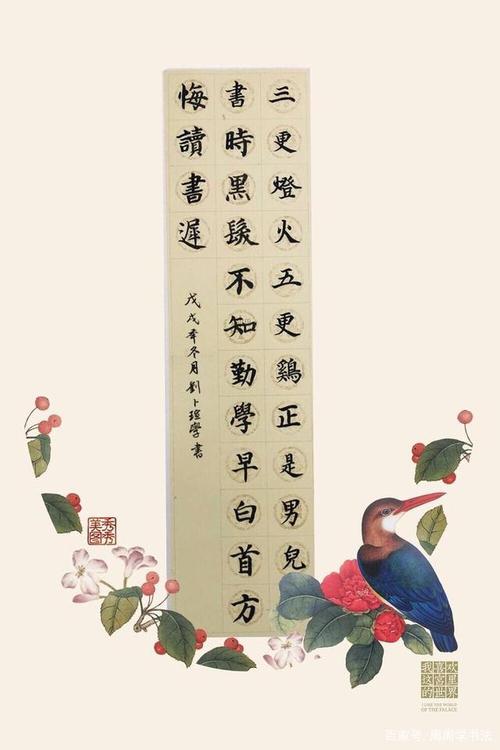 三更燈火五更鷄正是男兒
書時黑髮不知勤學早白首方
悔讀書遲
戊戌年冬月劉卜學書
美图秀秀
我喜欢
这宫里
的世界
I LIKE THE WORLD
OF THE PALACE
百家号/周周学书法